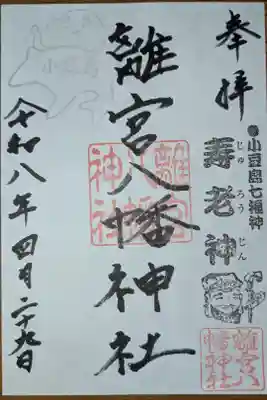 奉拝
小豆島七福神
寿老神
じゅろうじん
離宮八幡神社
離宮八幡神社
離宮八幡神社
小豆島
令和八年四月二十九日